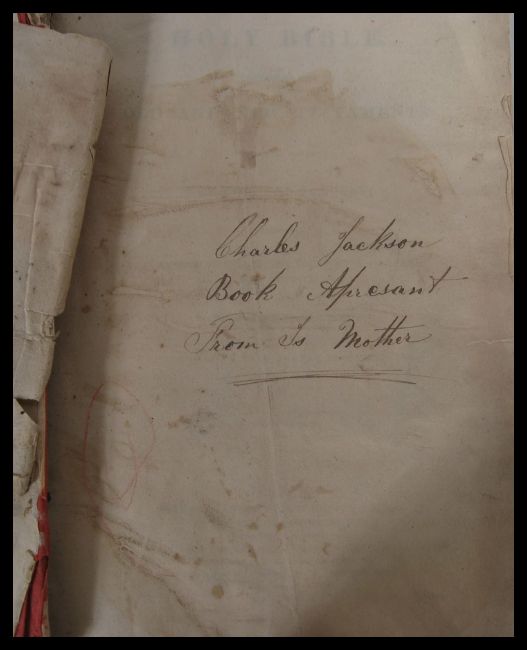 HOLY BIBLE
Charles Jackson
Book Apresant
From Is Mother